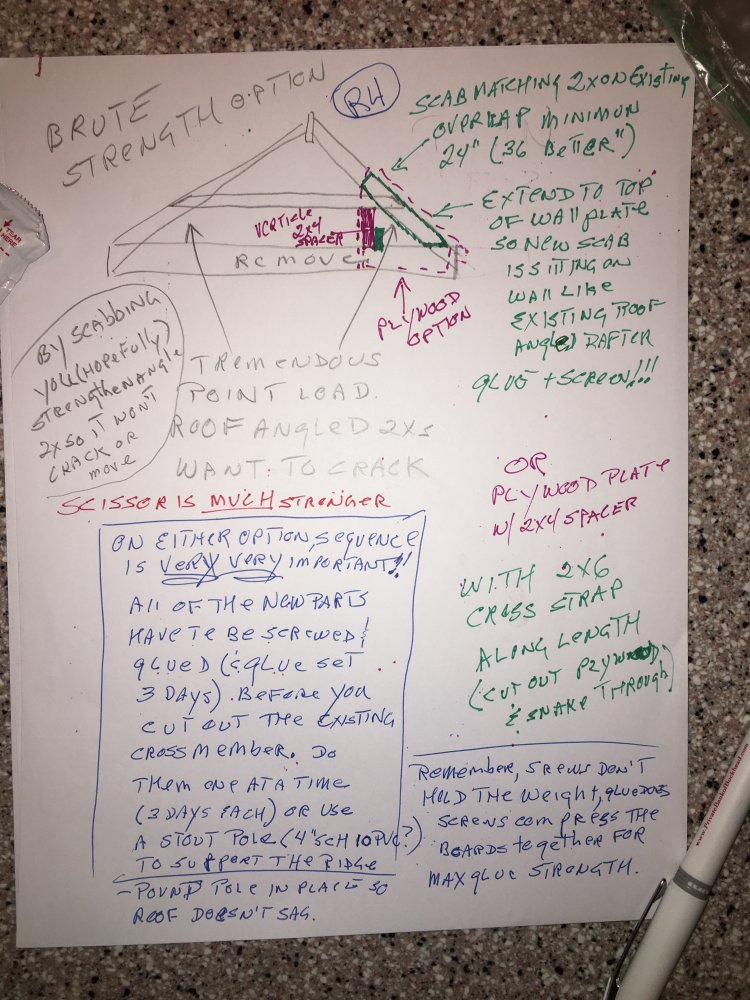 BRUTE
STRENGTH OPTION
BH
SCAB MATCHING 2X ON EXISTING
OVERLAP MINIMUN
24" (36 BETTER")
EXTEND TO TOP
OF WALL PLATE
SO NEW SCAB
IS SITTING ON
WALL LIKE
EXISTING ROOF
ANGLED RAFTER
GLUE + SCREW!!!
VERTICLE
2X4
SPACER
REMOVE
PLYWOOD
OPTION
BY SCABBING
YOU (HOPEFULLY)
STRENGTHEN ANGLE
2X SO IT WON'T
CRACK OR
MOVE
TREMENDOUS
POINT LOAD.
ROOF ANGLED 2XS
WANT TO CRACK
SCISSOR IS MUCH STRONGER
OR
PLYWOOD PLATE
W/ 2X4 SPACER
WITH 2X6
CROSS STRAP
ALONG LENGTH
(CUT OUT PLYWOOD)
& SNAKE THROUGH)
ON EITHER OPTION, SEQUENCE
IS VERY VERY IMPORTANT!!
All OF THE NEW PARTS
HAVE TE BE SCREWED &
GLUED (& GLUE SET
3 DAYS). BEFORE YOU
CUT OUT THE EXISTING
CROSSMEMBER. DO
THEM ONE AT A TIME
(3 DAYS EACH) OR USE
A STOUT POLE (4" SCH 10 PVC?)
TO SUPPORT THE RIDGE
- POUND POLE IN PLACE SO
ROOF DOESN'T SAG.
REMEMBER, SREWS DON'T
HOLD THE WEIGHT, GLUE DOES
SCREWS COMPRESS THE
BOARDS TOGETHER FOR
MAX GLUE STRENGTH.